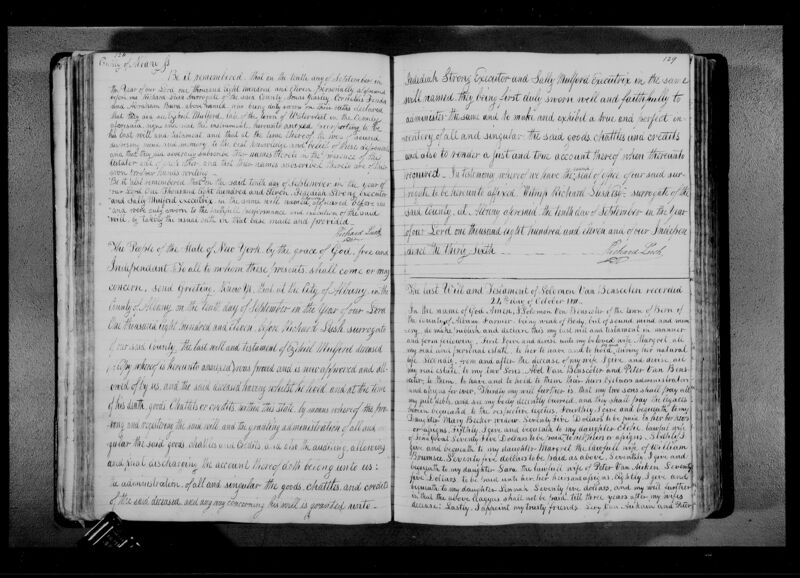 128
County of Albany ss
Be it remembered, that on the tenth day of September in
the Year of our Lord one thousand eight hundred and eleven Personally appeared
before me Richard Lush Surrogate of the said County
and Abraham Burn above named who being duly sworn on their oaths declared
that they did see Ezekiel Mulford, late of the town of Watervliet in the County
aforesaid sign and seal the instrument hereunto annexed purporting to be
his last will and testament and that at the time thereof he was of sound
disposing mind and memory to the best knowledge and belief of these deponents
and that they did severally subscribe their names thereto in the presence of the
testator and of each other and that their names subscribed thereto are of their
own proper hands writing
Be it also remembered that on the said tenth day of September in the year of
our Lord one thousand eight hundred and eleven, Jedediah Strong executor
and Sally Mulford executrix in the same will named, appeared before me
and were duly sworn to the faithful performance and execution of the said
will, by taking the usual oath in that case made and provided
Richard Lush
The People of the State of New York by the grace of God, free and
Independent To all to whom these presents shall come or may
concern, send Greeting, Know Ye, that at the City of Albany in the
County of Albany on the tenth day of September in the Year of our Lord
One thousand eight hundred and eleven before Richard Lush surrogate
of our said County, the last will and testament of Ezekiel Mulford deceased
(a copy whereof is hereunto annexed) was proved and is now approved and all-
owed of by us, and the said deceased having whilst he lived and at the time
of his death, goods Chattels or credits within this State by means whereof the pro-
ving and registering the said will and the granting administration of all and sin-
gular the said goods chattles and Credits and also the auditing, allowing
and final discharging the account thereof doth belong unto us:
The administration of all and singular the goods, chattles, and credits
of the said deceased and any way concerning his will is granted unto
129
Jedediah Strong Executor and Sally Mulford Executrix in the said
will named, they being first duly sworn well and faithfully to
administer the same and to make and exhibit a true and perfect in-
ventory of all and singular the said goods, chattles and credits
and also to render a just and true account thereof when thereunto
required. In testimony whereof we have the seal of office of our said sur-
rogate to be hereunto affixed Witness Richard Lush Esqr. surrogate of the
said County, at Albany aforesaid the tenth day of September in the Year
of our Lord one thousand eight hundred and eleven and of our Indepen-
dence the thirty sixth
Richard Lush
The Last Will and Testament of Solomon Van Benscoten recorded
24th day of October 1811.
In the name of God Amen, I Solomon Van Benscoter of the town of Bern of
the County of Albany Farmer being weak of Body, but of sound mind and mem-
ory, do make publish and declare this my last will and testament in manner
and form following. First I give and devise unto my beloved wife Margret all
my real and personal estate, to her to have and to hold during her natural
life Secondly, From and after the decease of my wife I give and devise all
my real estate to my two Sons Abel Van Benscoter and Peter Van Bens-
coter to them to have and to hold to them their heirs Executors administrators
and assigns for ever. Thirdly my will further is that my two sons shall pay all
my just debts and see my body decently buried, and they shall pay the legacies
herein bequeated to the respective legatees. Fourthly I give and bequeath to my
Daughter Mary Becker widow Seventy Five Dollars to be paid to her her heirs
or assigns. Fifthly I give and bequeath to my daughter Cloche lawful wife
of Seventy Five Dollars to be paid to her heirs or assigns. Sixthly I
give and bequeath to my daughter Margret the lawfull wife of William
Seventy five dollars to be paid as above. Seventhly I give and
bequeath to my daughter Sara the lawfull wife of Peter Van Aeiken Seventy
five Dollars, to be paid unto her, her heirs and assigns. Eightly I give and
bequeath to my daughter Hannah Seventy five dollars, and my will further
is that the above legacys shall not be paid till three years after my wifes
decease: Lastly I appoint my trusty friends Levy Van Aeiken and Peter